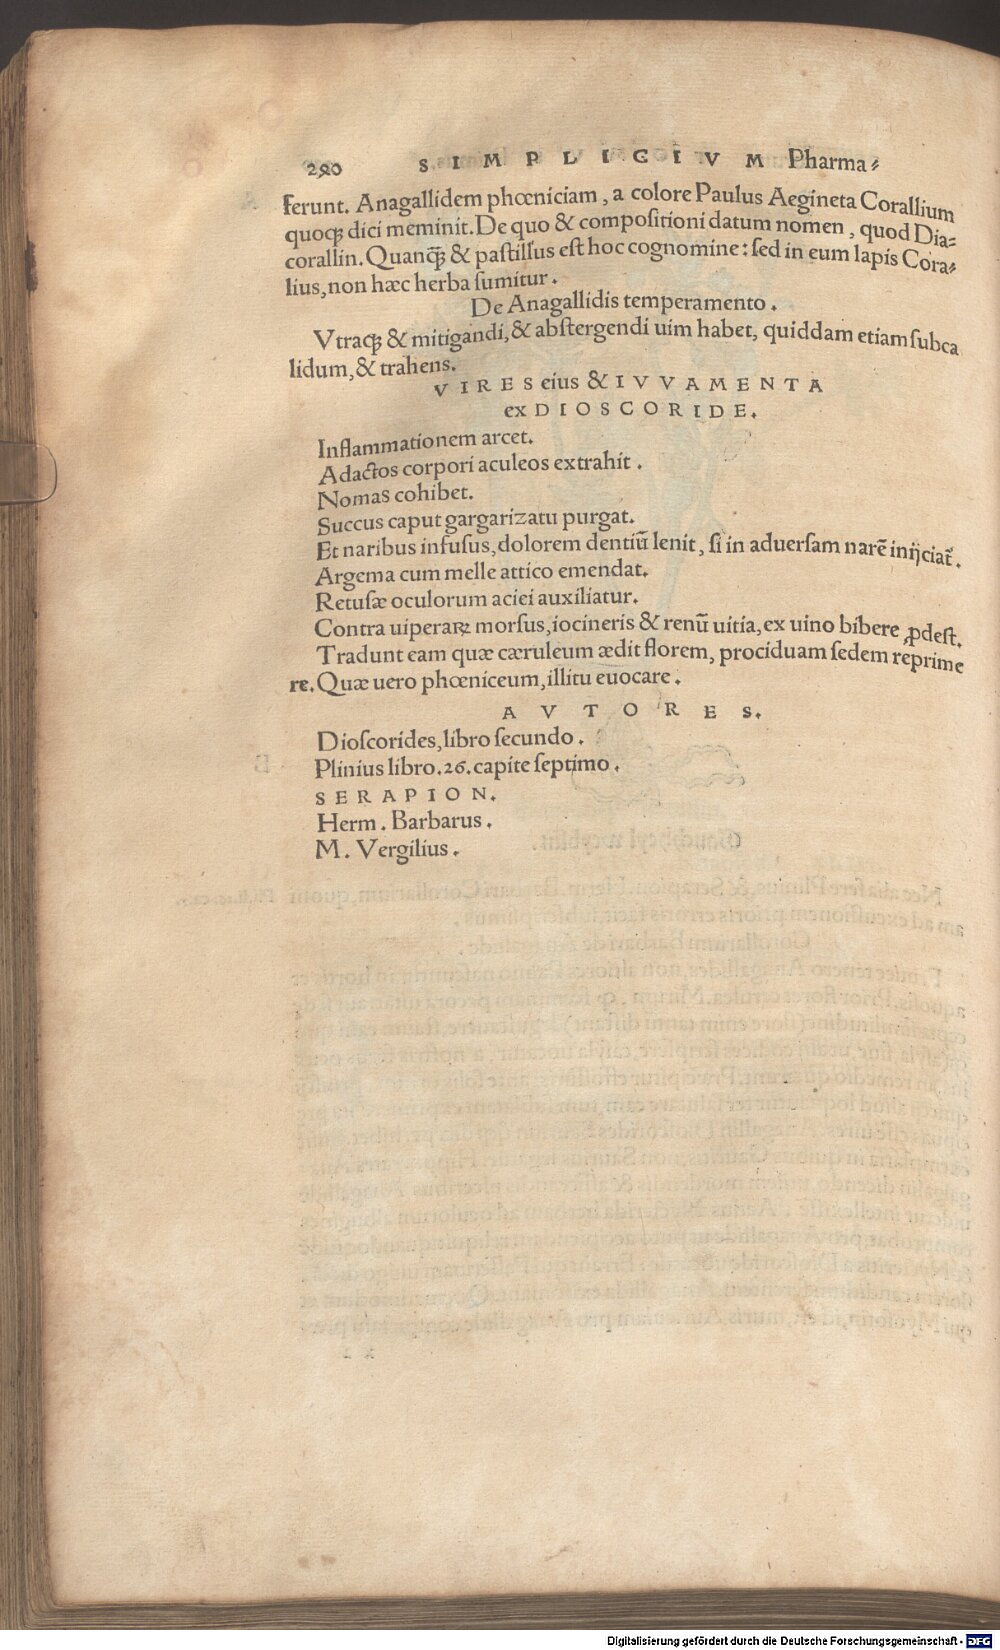 290 SIMPLICIVM Pharma⸗
ferunt. Anagallidem phœniciam, a colore Paulus Aegineta Corallium
quoqꝫ dici meminit. De quo & compositioni datum nomen, quod Dia⸗
corallin. Quanq̃ꝫ & pastillus est hoc cognomine: sed in eum lapis Cora⸗
lius, non hæc herba sumitur.
De Anagallidis temperamento.
Vtraqꝫ & mitigandi, & abstergendi uim habet, quiddam etiam subca
lidum, & trahens.
VIRES eius & IVVAMENTA
ex DIOSCORIDE.
Inflammationem arcet.
Adactos corpori aculeos extrahit.
Nomas cohibet.
Succus caput gargarizatu purgat.
Et naribus infusus, dolorem dentiū lenit, si in aduersam narē inijciat᷑.
Argema cum melle attico emendat.
Retusæ oculorum aciei auxiliatur.
Contra uiperaꝝ morsus, iocineris & renū uitia, ex uino bibere ꝓdest.
Tradunt eam quæ cæruleum ædit florem, prociduam sedem reprime
re. Quæ uero phœniceum, illitu euocare.
AVTORES.
Dioscorides, libro secundo.
Plinius libro. 26. capite septimo.
SERAPION.
Herm. Barbarus.
M. Vergilius.
Digitalisierung gefördert durch die Deutsche Forschungsgemeinschaft - DFG